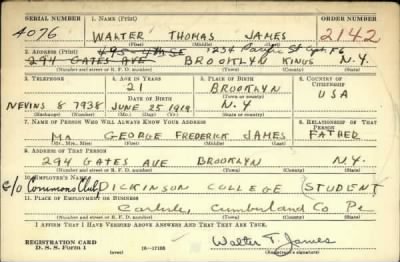 SERIAL NUMBER 1. NAME (Print) ORDER NUMBER
4076 WALTER THOMAS JAMES 2142
(First) (Middle) (Last)
2. ADDRESS (Print) 495 - 4th St 1234 Pacific St Apt F6
294 GATES AVE BROOKLYN KINGS N.Y.
(Number and street or R. F. D. number) (Town) (County) (State)
3. TELEPHONE 4. AGE IN YEARS 5. PLACE OF BIRTH 6. COUNTRY OF CITIZENSHIP
21 BROOKLYN
DATE OF BIRTH (Town or county) USA
NEVINS 8 7938 JUNE 25 1919 N.Y
(Exchange) (Number) (Mo.) (Day) (Yr.) (State or country)
7. NAME OF PERSON WHO WILL ALWAYS KNOW YOUR ADDRESS 8. RELATIONSHIP OF THAT PERSON
MR. GEORGE FREDERICK JAMES FATHER
(Mr., Mrs., Miss) (First) (Middle) (Last)
9. ADDRESS OF THAT PERSON
294 GATES AVE BROOKLYN N.Y.
(Number and street or R. F. D. number) (Town) (County) (State)
10. EMPLOYER'S NAME
C/O Commons Club DICKINSON COLLEGE STUDENT
11. PLACE OF EMPLOYMENT OR BUSINESS
Carlisle, Cumberland Co Pa
(Number and street or R. F. D. number) (Town) (County) (State)
I AFFIRM THAT I HAVE VERIFIED ABOVE ANSWERS AND THAT THEY ARE TRUE.
REGISTRATION CARD
D. S. S. Form 1 16—17105 Walter T. James
(Registrant's signature)